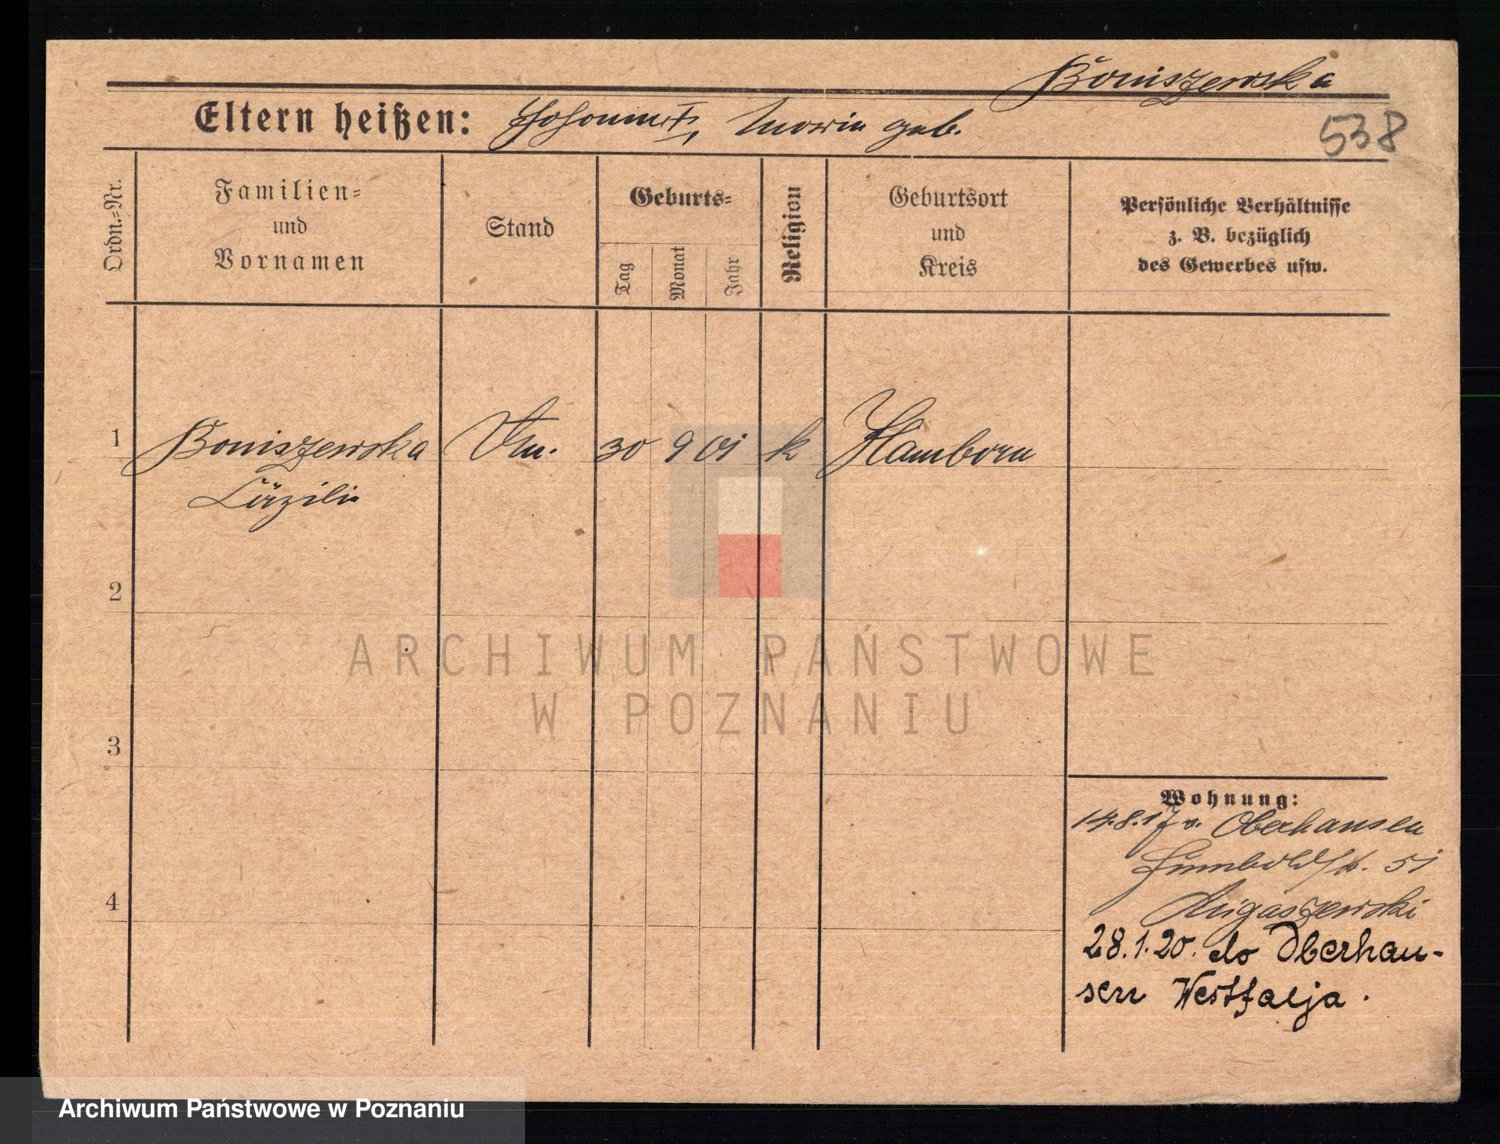 Boniszewska
Eltern heißen: Johann †, Maria geb.
538
Ordn.=Nr.
Familien=
und
Vornamen
Stand
Geburts=
Tag
Monat
Jahr
Religion
Geburtsort
und
Kreis
Persönliche Verhältnisse
z. B. bezüglich
des Gewerbes usw.
1 Boniszewska 30 9 01 k Hamborn
Cäzilie
2
3
4
Wohnung:
14.8.17 v. Oberhausen
51
28.1.20. do Oberhau-
sen Westfalja.
ARCHIWUM PAŃSTWOWE
W POZNANIU
Archiwum Państwowe w Poznaniu